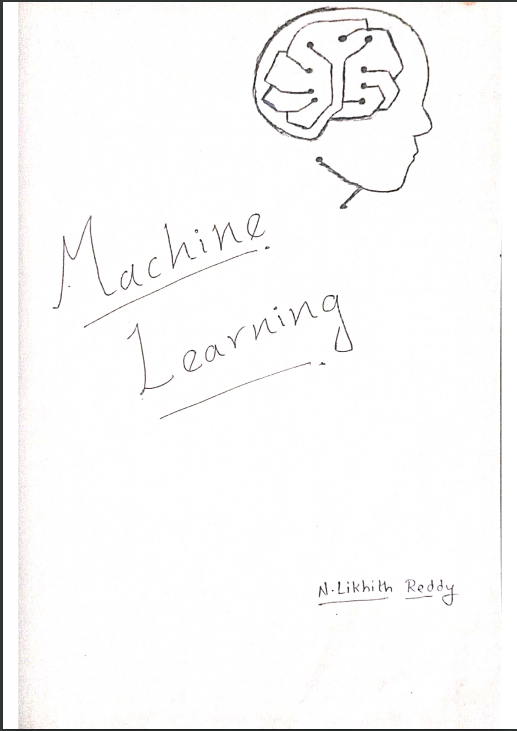 Machine
Learning
N. Likhith Reddy